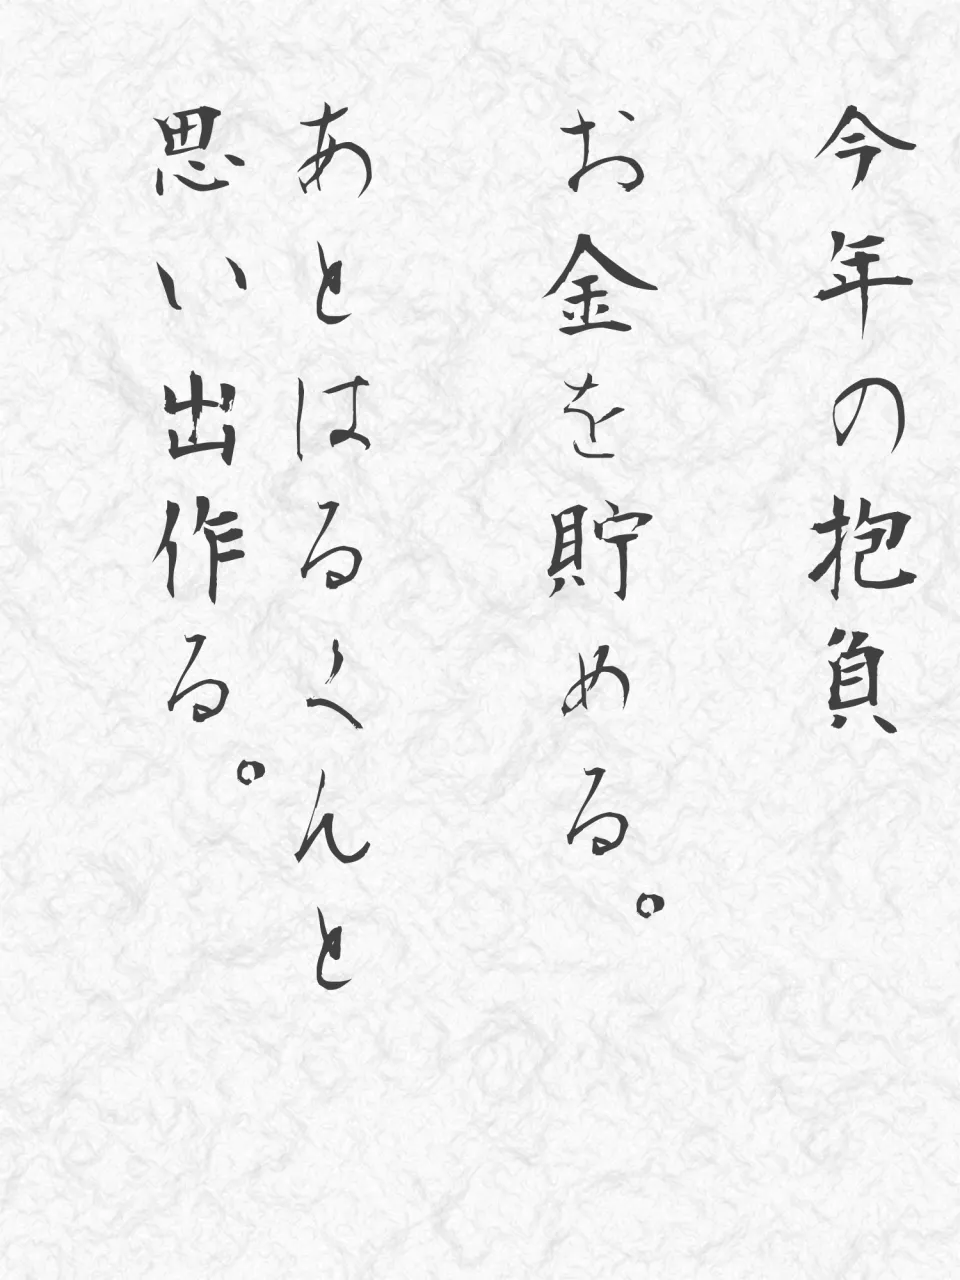 今年の抱負
お金を貯める。
あとはるくんと
思い出作る。